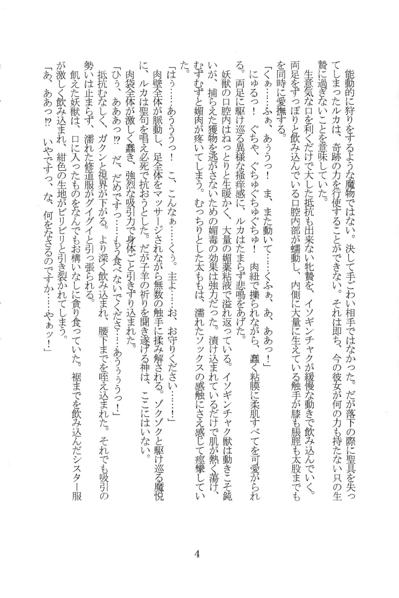 能動的に狩りをするような魔物ではない。決して手ごわい相手ではなかった。だが落下の際に聖具を失っ
てしまったルカは、奇跡の力を行使することができない。それは即ち、今の彼女が何の力も持たない只の生
贄に過ぎないことを意味していた。
生意気な口を利くだけで大した抵抗も出来ない牝贄を、イソギンチャクが緩慢な動きで飲み込んでいく。
両足をすっぽりと飲み込んでいる口腔内部が蠕動し、内側に大量に生えている触手が膝も脹脛も太股までも
を同時に愛撫する。
「くぁ……ふぁ、あぅっ！　ま、また動いて……くふぁ、あ、ああっ！」
にゅるっ！　ぐちゅ、ぐちゅぐちゅぐちゅ！　肉紐で撫られながら、蠢く粘膜に柔肌すべてを可愛がられ
る。両足に駆け巡る異様な掻痒感に、ルカはたまらず悲鳴をあげた。
妖獣の口腔内はねっとりと生暖かく、大量の媚薬粘液で溢れ返っている。イソギンチャク獣は動きこそ鈍
いが、捕らえた獲物を逃がさないための媚毒の効果は強力だった。漬け込まれているだけで肌が熱く蕩け、
むずむずと媚肉が疼いてしまう。むっちりとした太ももは、濡れたソックスの感触にさえ感じて痙攣してい
た。
「はぅ……あぅううっ！　こ、こんなぁ……くぅ。主よ……お、お守りください……！」
肉壁全体が脈動し、足全体をマッサージされながら無数の触手に揉み解される。ゾクゾクと駆け巡る魔悦
に、ルカは聖句を唱え必死で抗おうとした。だが子羊の祈りを聞き遂げる神は、ここにはいない。
肉袋全体が激しく蠢き、強烈な吸引力で身体ごと引きずり込まれた。
「ひぅ、ああぁっ!?　だ、だめですっ……もう食べないでくださ……あうぅぅうっ！」
抵抗むなしく、ガクンと視界が下がる。より深く飲み込まれ、腰下までを咥え込まれた。それでも吸引の
勢いは止まらず、濡れた修道服がグイグイと引っ張られる。
飢えた妖獣は、口に入ったものをなんでもお構いなしに貪り食っていた。裾までを飲み込んだシスター服
が激しく飲み込まれ、紺色の生地がビリビリと引き裂かれてしまう。
「あ、ああっ!?　いやですっ、な、何をなさるのですか……やぁッ！」
4